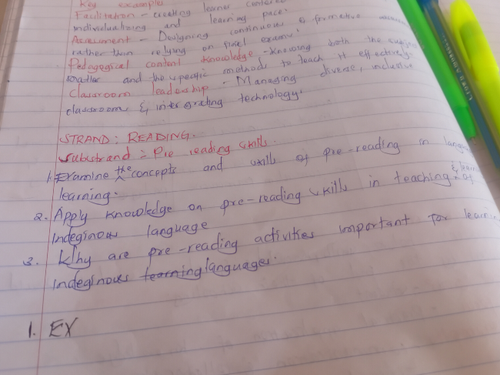 Key examples
Facilitation - creating learner centered
individualising and learning pace.
Assessment - Designing continuous & formative
rather than relying on just exams.
Pedagogical content knowledge - knowing both the subject
matter and the specific methods to teach it effectively.
Classroom leadership - Managing diverse, inclusive
classroom & integrating technology.
STRAND: READING.
Substrand: Pre reading skills.
1. Examine the concepts and skills of pre-reading in
learning.
2. Apply knowledge on pre-reading skills in teaching & of
indeginous language
3. Why are pre-reading activities important for
indeginous learning languages.
1. EX